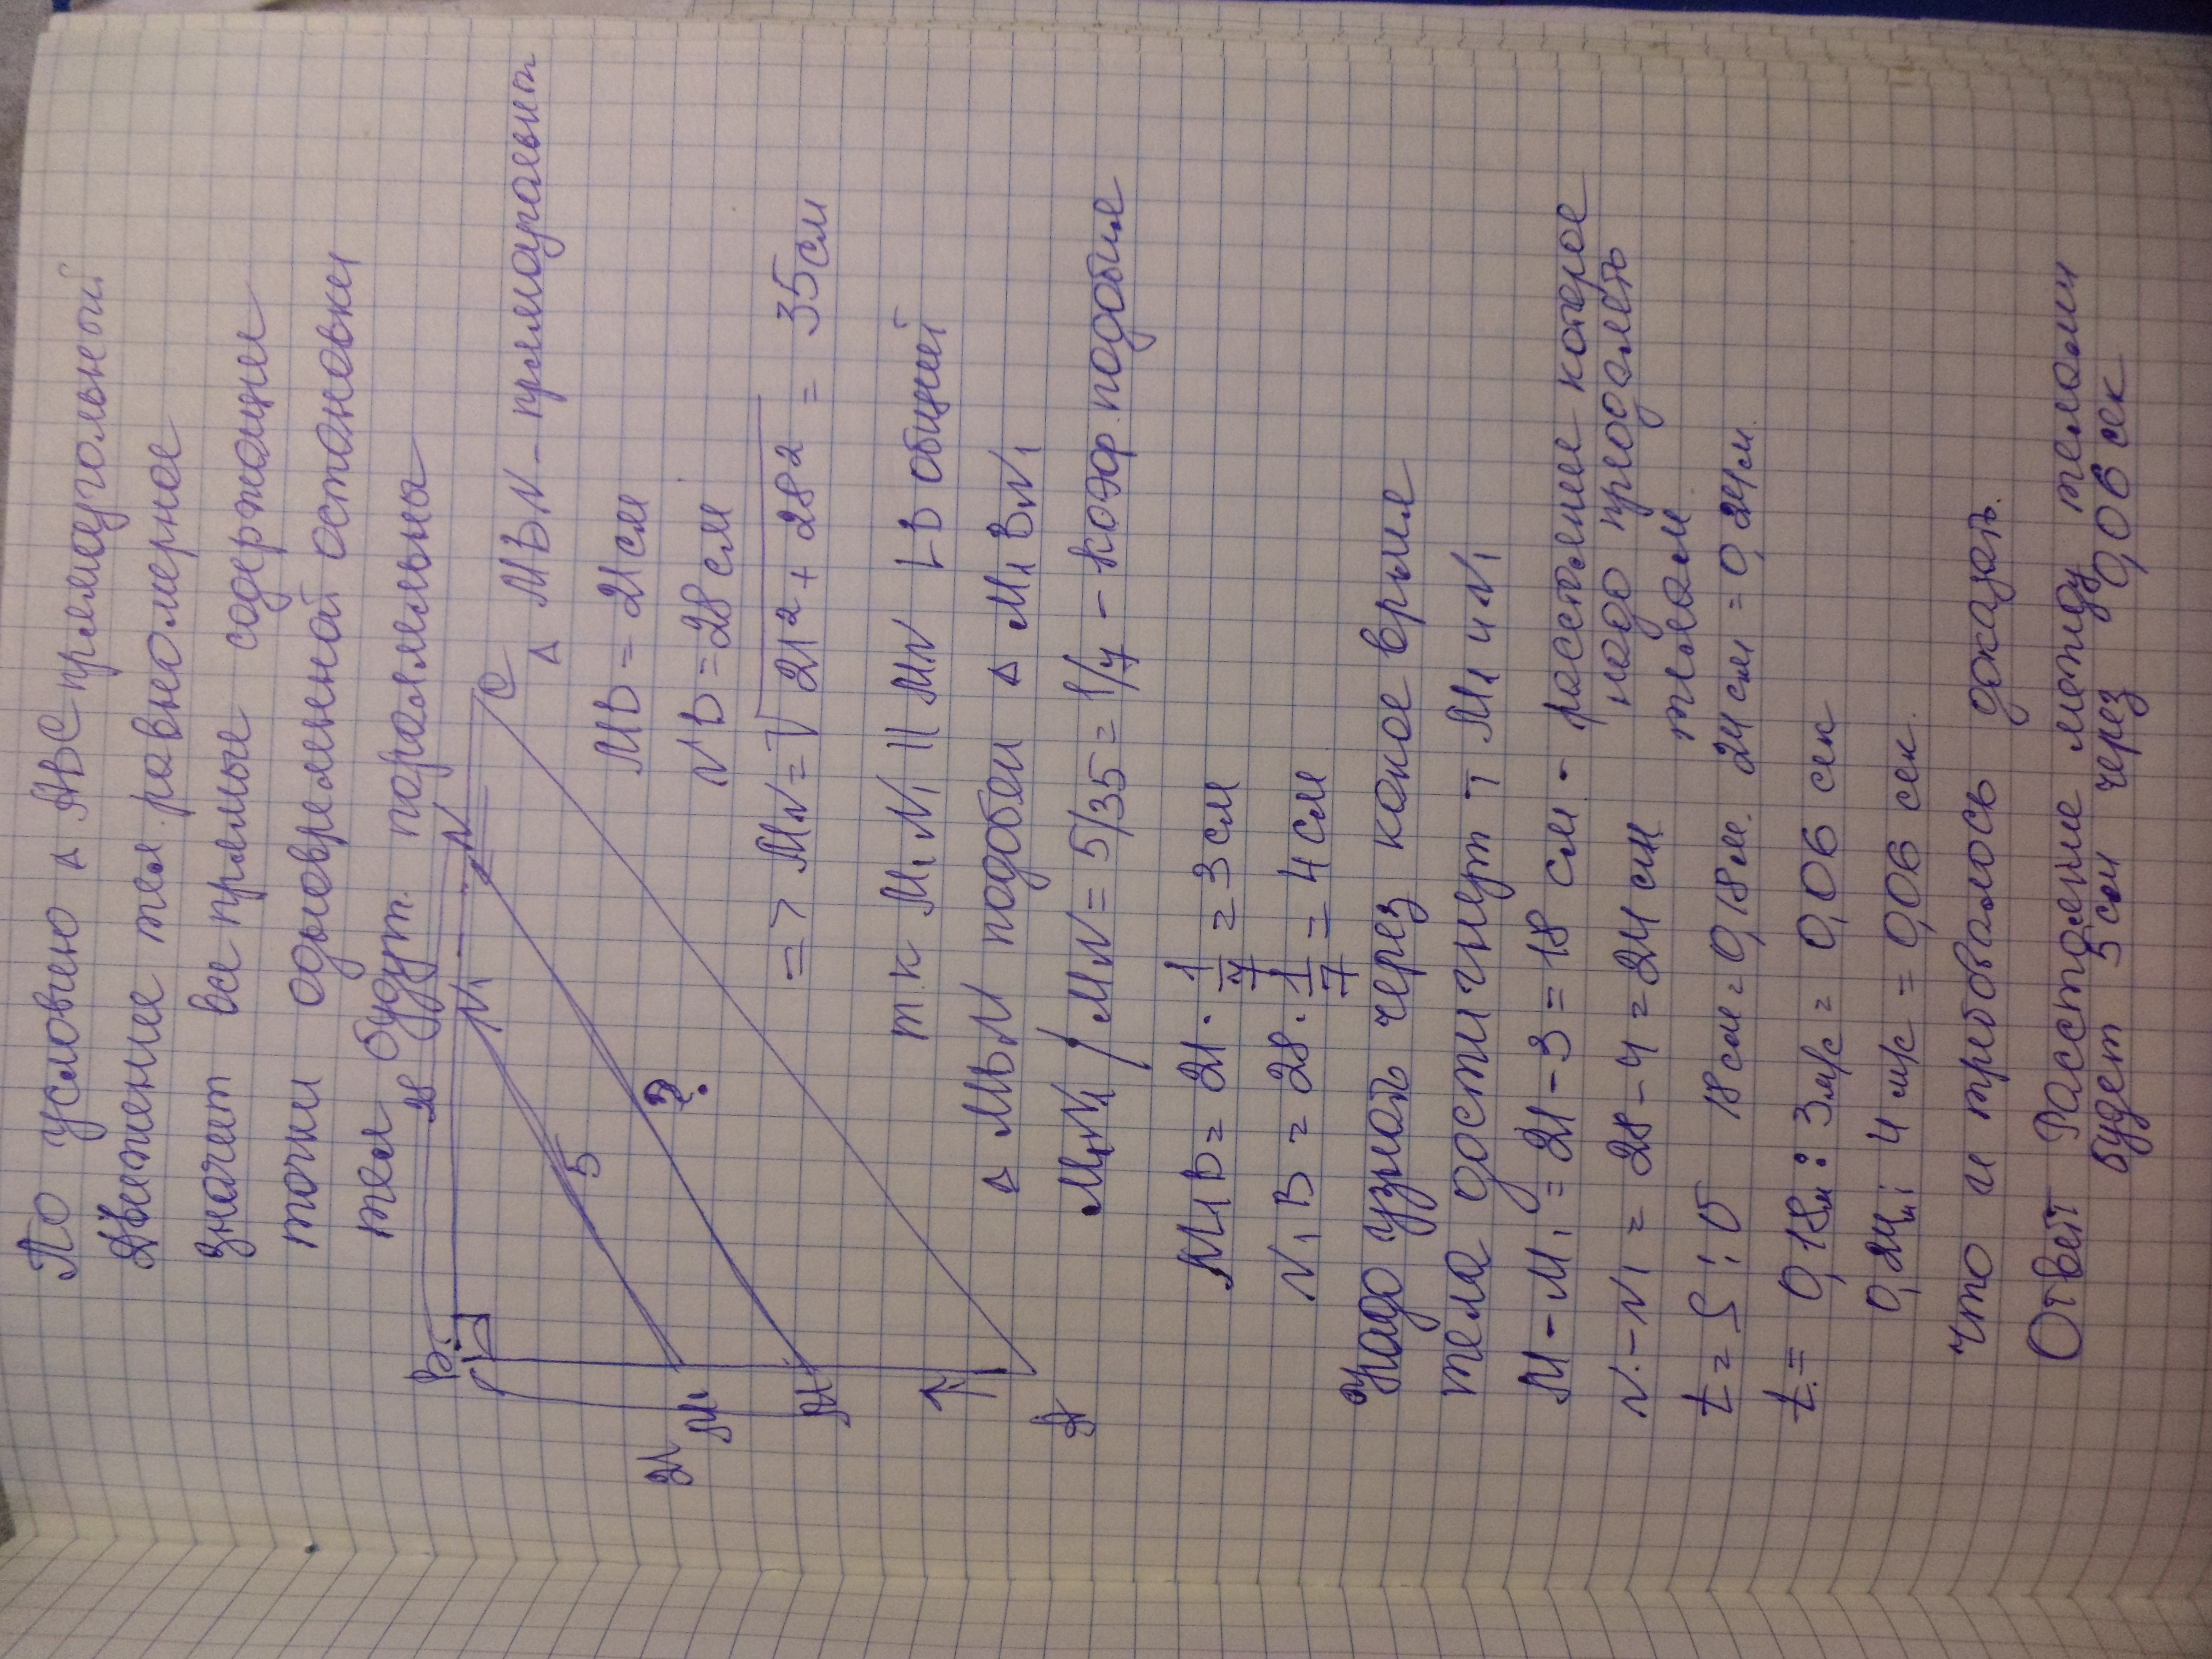 По условию Δ ABC прямоугольный
Движение тел равномерное
значит все прямые содержащие
точки одновременной остановки
тел будут параллельны
B
28
N1
N
C
5
?
21
M1
M
A
Δ MBN - прямоугольный
MB = 21 см
NB = 28 см
=> MN = √21² + 28² = 35 см
т.к M1N1 || MN ∟B общий
Δ MBN подобен Δ M1BN1
M1N1 / MN = 5/35 = 1/7 - коэф. подобия
M1B = 21 · 1/7 = 3 см
N1B = 28 · 1/7 = 4 см
Надо узнать через какое время
тела достигнут т M1 и N1
M - M1 = 21 - 3 = 18 см - расстояние которое
надо преодолеть
телам
N - N1 = 28 - 4 = 24 см
t = S : v 18 см = 0,18 м. 24 см = 0,24 м.
t = 0,18м : 3 м/с = 0,06 сек
0,24м : 4 м/с = 0,06 сек.
Что и требовалось доказать.
Ответ Расстояние между телами
будет 5 см через 0,06 сек